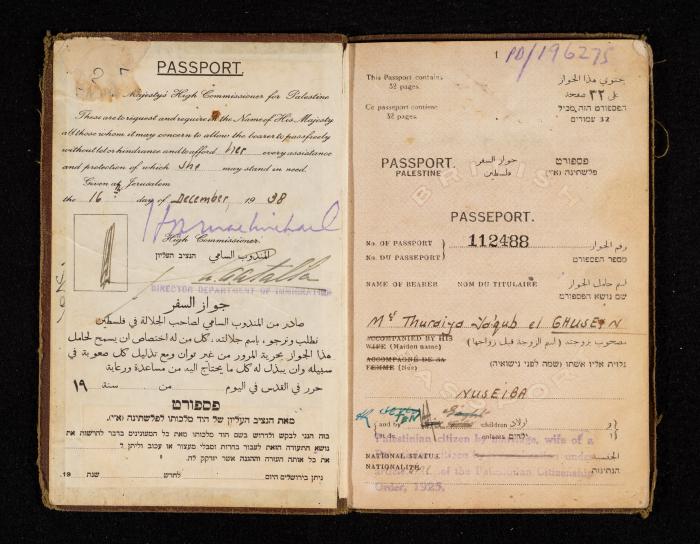 PASSPORT.
Majesty's High Commissioner for Palestine
These are to request and require in the Name of His Majesty
all those whom it may concern to allow the bearer to pass freely
without let or hindrance and to afford her every assistance
and protection of which she may stand in need.
Given at Jerusalem
the 16th day of December, 1938
High Commissioner.
المندوب السامي הנציב העליון
DIRECTOR DEPARTMENT OF IMMIGRATION
جواز السفر
صادر من المندوب السامي لصاحب الجلالة في فلسطين
نطلب ونرجو، باسم جلالته، كل من له اختصاص ان يسمح لحامل
هذا الجواز بحرية المرور من غير توان ومع تذليل كل صعوبة في
سبيله وان يبذل له كل ما يحتاج اليه من مساعدة ورعاية
حرر في القدس في اليوم من سنة ١٩
פספורט
מאת הנציב העליון של הוד מלכותו לפלשתינה (א״י).
בזה הנני לבקש ולדרוש בשם הוד מלכותו מאת כל המעונינים בדבר להרשות את
נושא התעודה הזאת לעבור בחרות ומבלי מעצור או עכוב וליתן ל
את כל אותה העזרה וההגנה אשר יזדקק לה.
ניתן בירושלים היום לחדש שנת 19
1 PD/196275
This Passport contains
32 pages.
Ce passeport contient
32 pages.
يحتوي هذا الجواز
على ٣٢ صفحة
הפספורט הזה מכיל
32 עמודים
BRITISH
PASSPORT.
PALESTINE
جواز السفر
فلسطين
פספורט
פלשתינה (א״י)
PASSEPORT.
No. OF PASSPORT
No. DU PASSEPORT
112488
رقم الجواز
מספר הפספורט
NAME OF BEARER NOM DU TITULAIRE
اسم حامل الجواز
שם נושא הפספורט
Mrs Thuraiya Ya'qub el GHUSEIN
ACCOMPANIED BY HIS
WIFE (Maiden name)
ACCOMPAGNÉ DE SA
FEMME (Née)
مصحوب بزوجته (اسم الزوجة قبل زواجها)
נלוית אליו אשתו (שמה לפני נישואיה)
NUSEIBA
and by children اولاد
et de enfants ילדים
Palestinian citizen by marriage, wife of a
NATIONAL STATUS
NATIONALITÉ
الجنسية
הנתינות
of the Palestinian Citizenship
Order, 1925.